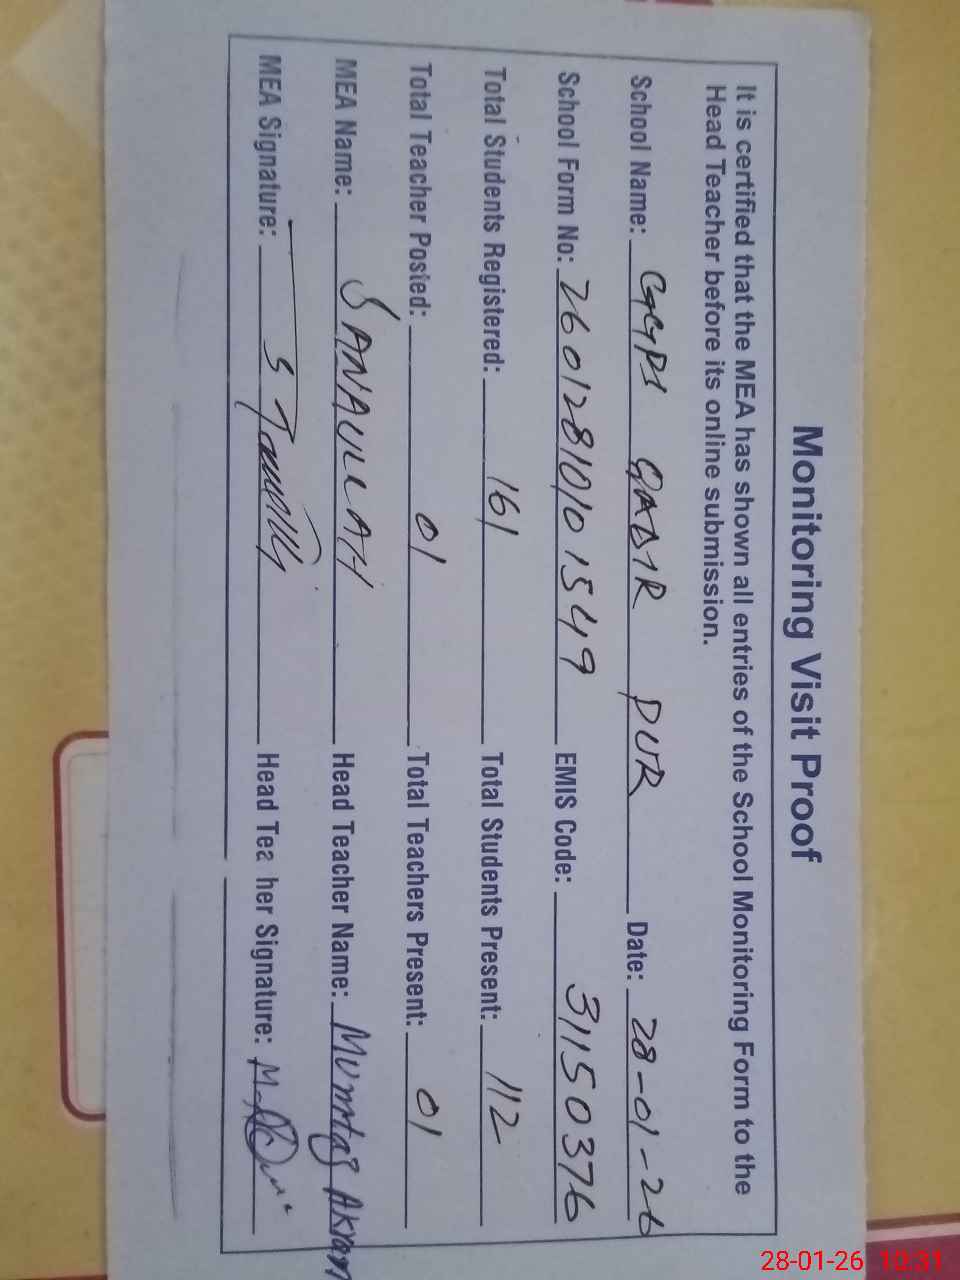 Monitoring Visit Proof
It is certified that the MEA has shown all entries of the School Monitoring Form to the
Head Teacher before its online submission.
School Name: GGPS QADIR PUR Date: 28-01-26
School Form No: 26012810101549 EMIS Code: 31150376
Total Students Registered: 161 Total Students Present: 112
Total Teacher Posted: 01 Total Teachers Present: 01
MEA Name: SANAULLAH Head Teacher Name: Mumtaz Akram
MEA Signature: Head Tea her Signature:
28-01-26 10:31